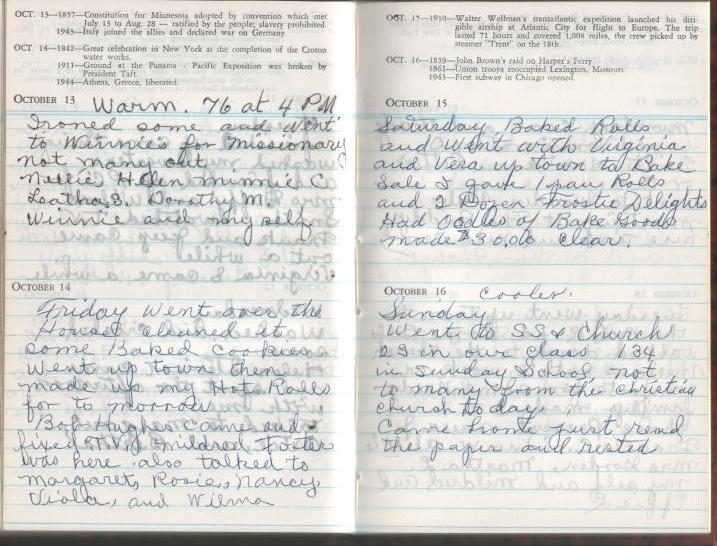 OCT. 13—1857—Constitution for Minnesota adopted by convention which met
July 13 to Aug. 28 — ratified by the people; slavery prohibited.
1943—Italy joined the allies and declared war on Germany.
OCT. 14—1842—Great celebration in New York at the completion of the Croton
water works.
1911—Ground at the Panama - Pacific Exposition was broken by
President Taft.
1944—Athens, Greece, liberated.
OCTOBER 13 Warm. 76 at 4 PM
Ironed some and went
to Winnie's for missionary
not many out
Nellie, Helen Minnie C
Leatha B. Dorothy M.
Winnie and my self
OCTOBER 14
Friday Went over the
House cleaned it
some Baked Cookies
Went up town then
made up my Hot Rolls
for to morrow
Bob Hughes came and
fixed T.V. mildred Foster
was here also talked to
Margaret, Rosie, Nancy
Viola, and Wilma
OCT. 15—1910—Walter Wellman's transatlantic expedition launched his diri-
gible airship at Atlantic City for flight to Europe. The trip
lasted 71 hours and covered 1,008 miles, the crew picked up by
steamer "Trent" on the 18th.
OCT. 16—1859—John Brown's raid on Harper's Ferry.
1861—Union troops reoccupied Lexington, Missouri.
1943—First subway in Chicago opened.
OCTOBER 15
Saturday Baked Rolls
and Went with Virginia
and Vera up town to Bake
Sale I gave 1 pan Rolls
and 2 Dozen Frostie Delights
Had Oodles of Bake Goods
made $30.00 clear.
OCTOBER 16 cooler.
Sunday
Went to SS & Church
23 in our class 134
in Sunday School not
to many from the christian
church to day.
Came home just read
the paper and rested